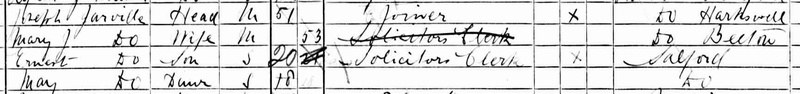 Joseph Jarville Head M 51 Joiner X Do Harksvell
Mary J Do Wife M 53 Solicitors Clerk Do Beeton
Ernest Do Son S 20 Solicitors Clerk X Salford
May Do Daur S 18 Do